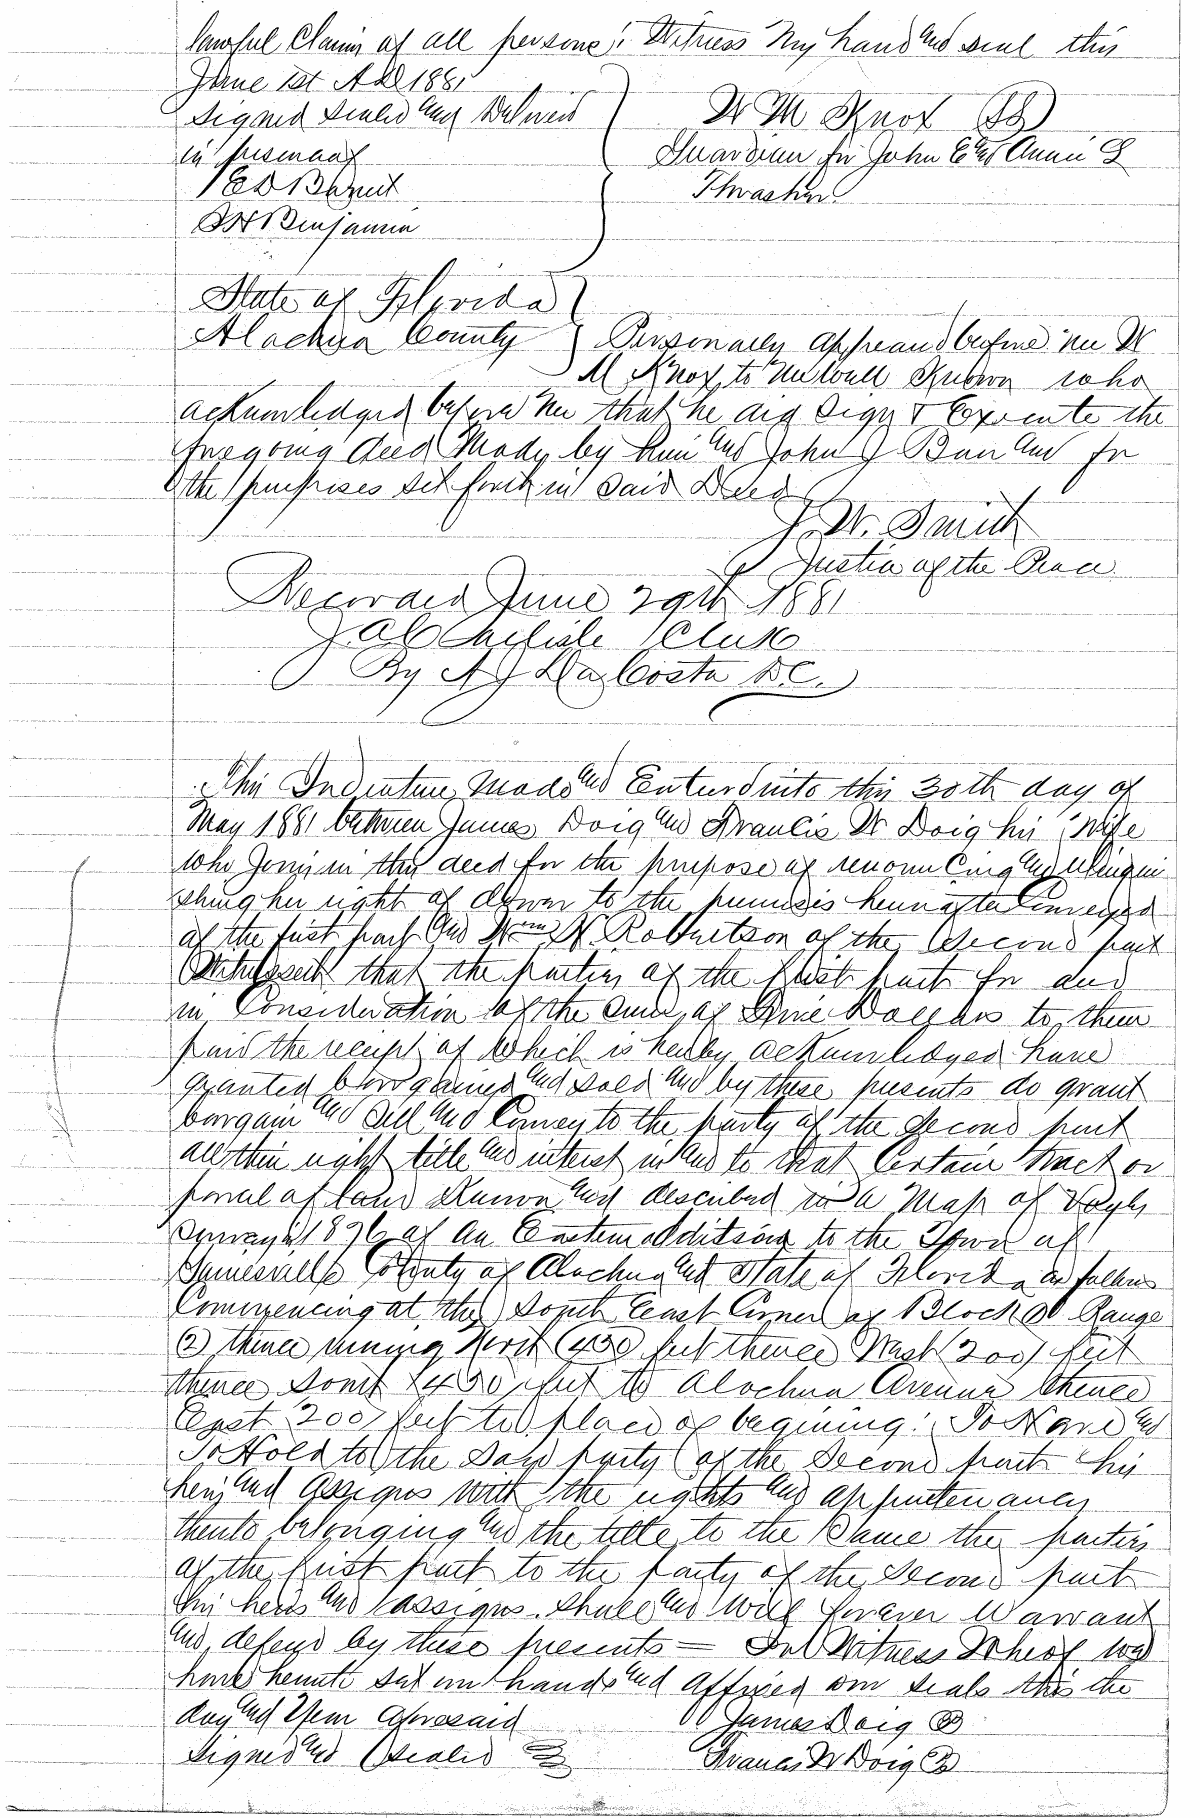 lawful Claims of all persons: Witness My hand and seal this
June 1st AD 1881
Signed Sealed and Delivered
in presence of
J H Benjamin
W M Knox
Guardian for John C and Annie
Thrasher
State of Florida
Alachua County } Personally appeared before me W
M Knox to me well Known who
acknowledged before me that he did Sign & Execute the
foregoing deed Made by him and John J and for
the purposes set forth in said Deed
J. W. Smith
Justice of the Peace
Recorded June 29th 1881
J A Carlisle Clerk
By A J Da Costa D.C.
This Indenture Made and Entered into this 30th day of
May 1881 between James Doig and Francis W Doig his Wife
who Joins in this deed for the purpose of renouncing and relinqui
shing her right of dower to the premises hereinafter Conveyed
of the first part and Wm N Robertson of the Second part
Witnesseth that the parties of the first part for and
in Consideration of the sum of Dollars to them
paid the receipt of which is hereby acknowledged have
granted bargained and sold and by these presents do grant
bargain and sell and Convey to the party of the Second part
all their right title and interest in and to that Certain tract or
parcel of land Known and described in a Map of
Survey of an Eastern addition to the Town of
Gainesville County of Alachua and State of Florida as follows
Commencing at the South East Corner of Block Range
(2) thence running North (430) feet thence West (200) feet
thence South (430) feet to Alachua Avenue thence
East 200 feet to place of begining: To Have and
To Hold to the Said party of the Second part his
heirs and assigns with the rights and appurtenances
thereto belonging and the title to the Same the parties
of the first part to the party of the Second part
his heirs and assigns shall and will forever Warrant
and defend by these presents — In Witness Whereof we
have hereunto set our hands and affixed our seals this the
day and Year aforesaid James Doig
Signed and Sealed Francis W Doig